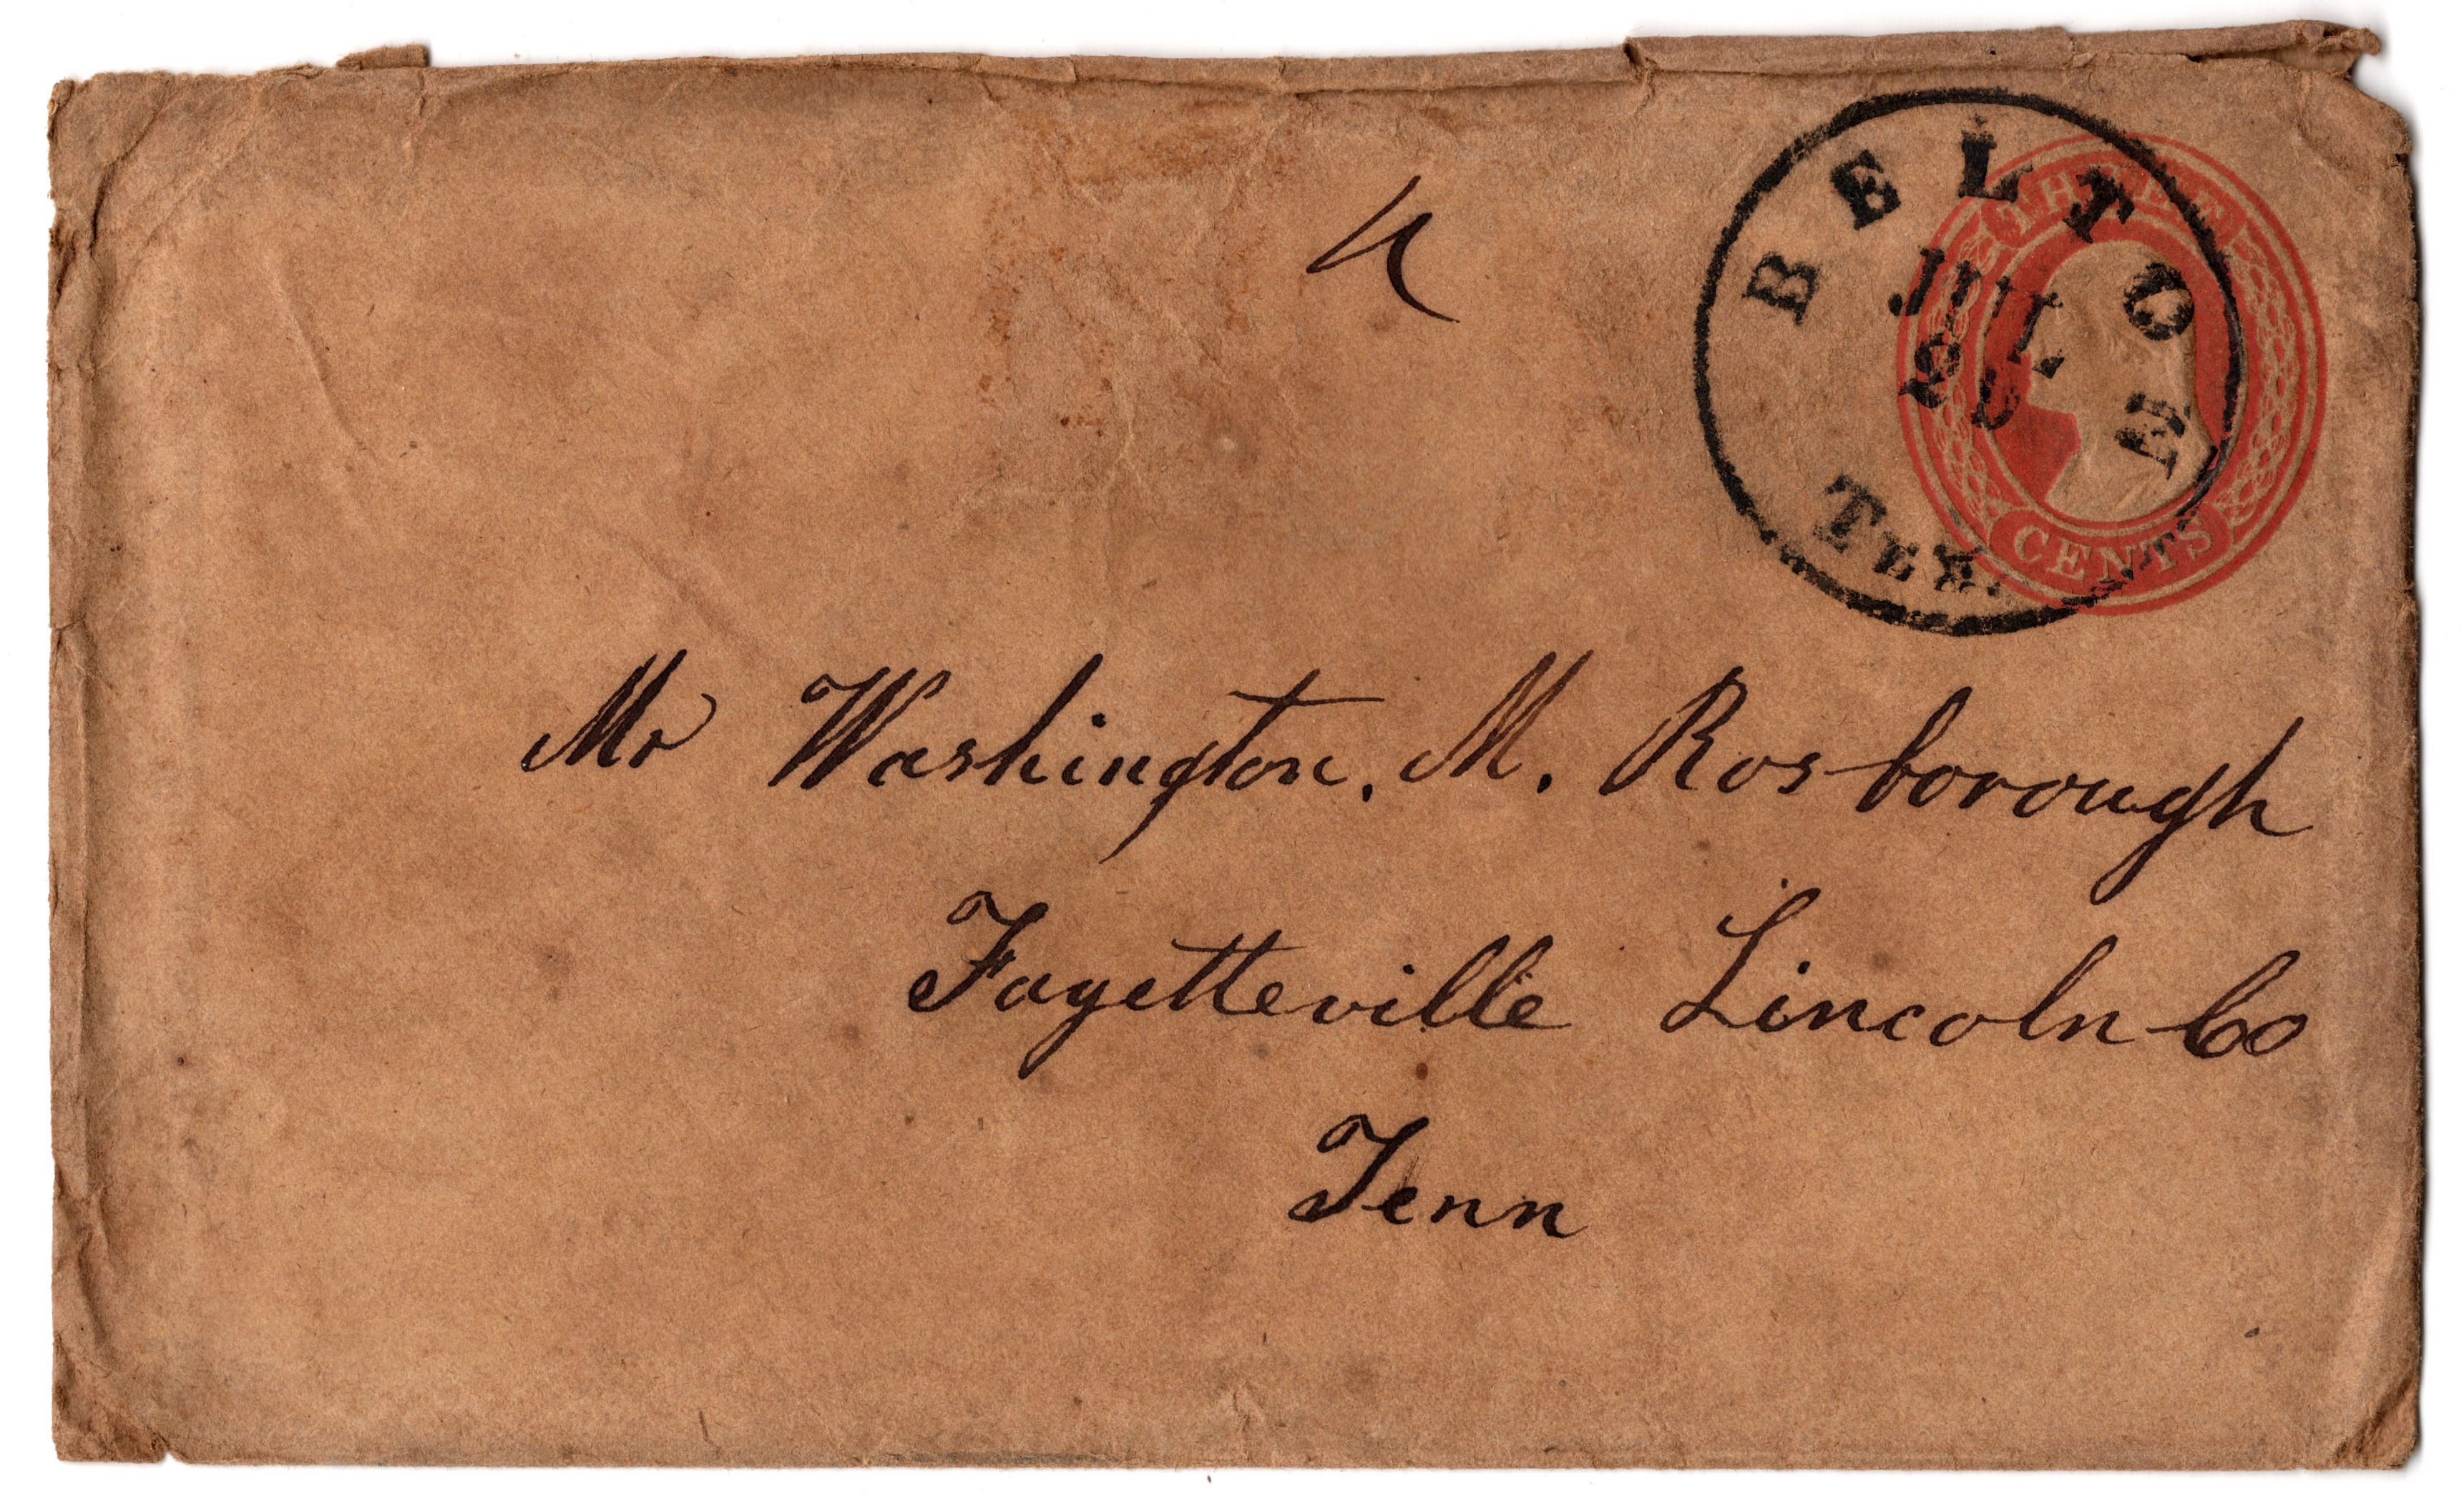 BELTON
JUL
TEX.
THREE
CENTS
Mr Washington. M. Rosborough
Fayetteville Lincoln Co
Tenn